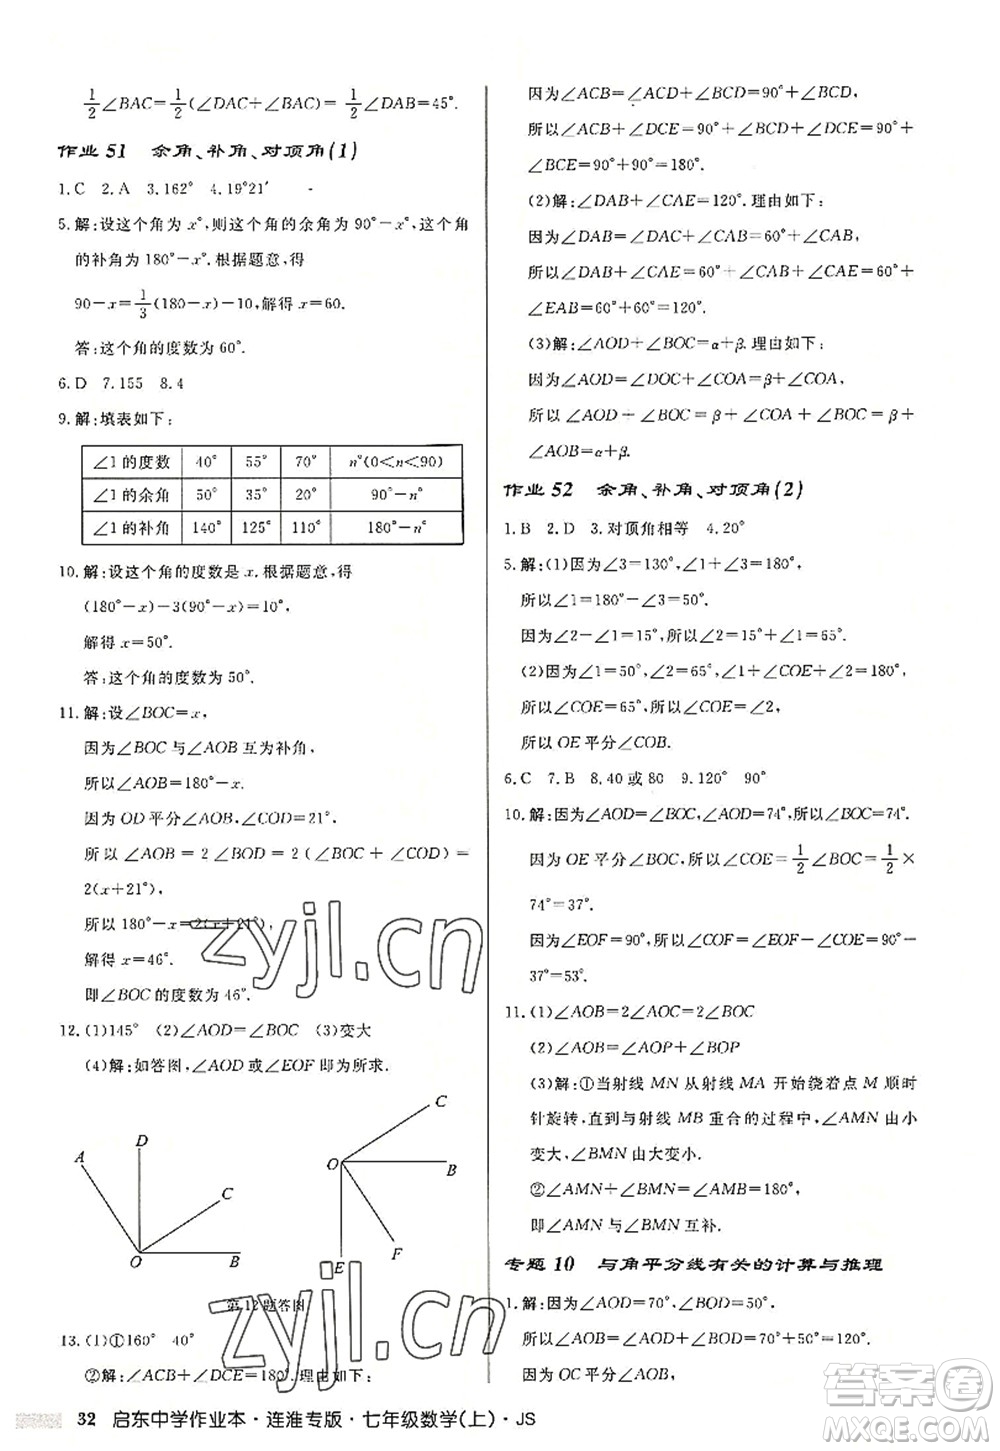 1/2∠BAC=1/2(∠DAC+∠BAC)=1/2∠DAB=45°.
作业 51 余角、补角、对顶角(1)
1.C 2.A 3.162° 4.19°21′
5.解:设这个角为 x°,则这个角的余角为 90°－x°,这个角
的补角为 180°－x°.根据题意,得
90－x=1/3(180－x)－10,解得 x=60.
答:这个角的度数为 60°.
6.D 7.155 8.4
9.解:填表如下:
∠1 的度数 40° 55° 70° n°(0＜n＜90)
∠1 的余角 50° 35° 20° 90°－n°
∠1 的补角 140° 125° 110° 180°－n°
10.解:设这个角的度数是 x.根据题意,得
(180°－x)－3(90°－x)=10°,
解得 x=50°.
答:这个角的度数为 50°.
11.解:设∠BOC=x,
因为∠BOC 与∠AOB 互为补角,
所以∠AOB=180°－x.
因为 OD 平分∠AOB,∠COD=21°,
所以∠AOB=2∠BOD=2(∠BOC+∠COD)=
2(x+21°),
所以 180°－x=2(x+21°),
解得 x=46°.
即∠BOC 的度数为 46°.
12.(1)145° (2)∠AOD=∠BOC (3)变大
(4)解:如答图,∠AOD 或∠EOF 即为所求.
A D C O B
C O B E F
第 12 题答图
13.(1)①160° 40°
②解:∠ACB+∠DCE=180°.理由如下:
因为∠ACB=∠ACD+∠BCD=90°+∠BCD,
所以∠ACB+∠DCE=90°+∠BCD+∠DCE=90°+
∠BCE=90°+90°=180°.
(2)解:∠DAB+∠CAE=120°.理由如下:
因为∠DAB=∠DAC+∠CAB=60°+∠CAB,
所以∠DAB+∠CAE=60°+∠CAB+∠CAE=60°+
∠EAB=60°+60°=120°.
(3)解:∠AOD+∠BOC=α+β.理由如下:
因为∠AOD=∠DOC+∠COA=β+∠COA,
所以∠AOD+∠BOC=β+∠COA+∠BOC=β+
∠AOB=α+β.
作业 52 余角、补角、对顶角(2)
1.B 2.D 3.对顶角相等 4.20°
5.解:(1)因为∠3=130°,∠1+∠3=180°,
所以∠1=180°－∠3=50°.
因为∠2－∠1=15°,所以∠2=15°+∠1=65°.
(2)因为∠1=50°,∠2=65°,∠1+∠COE+∠2=180°,
所以∠COE=65°,所以∠COE=∠2,
所以 OE 平分∠COB.
6.C 7.B 8.40 或 80 9.120° 90°
10.解:因为∠AOD=∠BOC,∠AOD=74°,所以∠BOC=74°.
因为 OE 平分∠BOC,所以∠COE=1/2∠BOC=1/2×
74°=37°.
因为∠EOF=90°,所以∠COF=∠EOF－∠COE=90°－
37°=53°.
11.(1)∠AOB=2∠AOC=2∠BOC
(2)∠AOB=∠AOP+∠BOP
(3)解:①当射线 MN 从射线 MA 开始绕着点 M 顺时
针旋转,直到与射线 MB 重合的过程中,∠AMN 由小
变大,∠BMN 由大变小.
②∠AMN+∠BMN=∠AMB=180°,
即∠AMN 与∠BMN 互补.
专题 10 与角平分线有关的计算与推理
1.解:因为∠AOD=70°,∠BOD=50°.
所以∠AOB=∠AOD+∠BOD=70°+50°=120°.
因为 OC 平分∠AOB,
32 启东中学作业本·连淮专版·七年级数学(上)·JS
zyjl.cn
zyjl.cn
答案圈
MXQE.COM